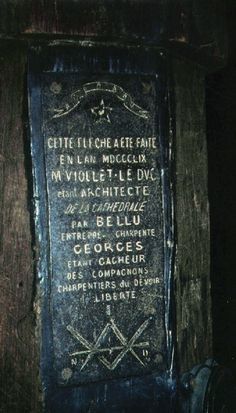 CETTE FLECHE A ETE FAITE
EN LAN MDCCCLIX
M VIOLLET·LE DUC
étant ARCHITECTE
DE LA CATHEDRALE
PAR BELLU
ENTREPRE· CHARPENTE
GEORGES
ETANT GACHEUR
DES COMPAGNONS
CHARPENTIERS DU DEVOIR
LIBERTÉ